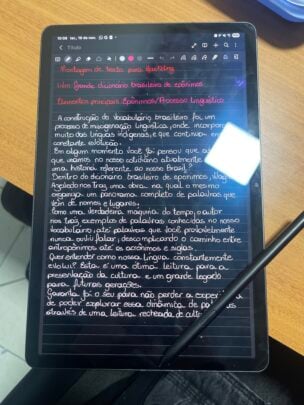 10:08 ter., 18 de nov.
Título
Montagem de texto para Marketing
Um Grande dicionário brasileiro de epônimos
Elementos principais: Epônimos/Processo linguístico
A construção do Vocabulário brasileiro foi um
processo de miscigenação linguística, onde incorpor
muito das línguas indígenas, e que continua em
constante evolução.
Em algum momento você já pensou que as
que usamos no nosso cotidiano atualmente
uma história referente ao nosso Brasil?
Dentro do dicionário brasileiro de epônimos,
nos traz uma obra na qual o mesmo
um panorama completo de palavras que
vem de nomes e lugares.
Como uma verdadeira máquina do tempo, o autor
nos traz exemplos de palavras conhecidas no nosso
vocabulário, até palavras que você provavelmente
nunca ouviu falar, descomplicando o caminho entre
antropônimos até os acrônimos e siglas.
Quer entender como nossa língua constantemente
evoluiu? Esta é uma ótima leitura para a
preservação da cultura e um grande legado
para futuras gerações.
Garanta já o seu para não perder a
de poder explorar essa dinâmica de
através de uma leitura recheada de